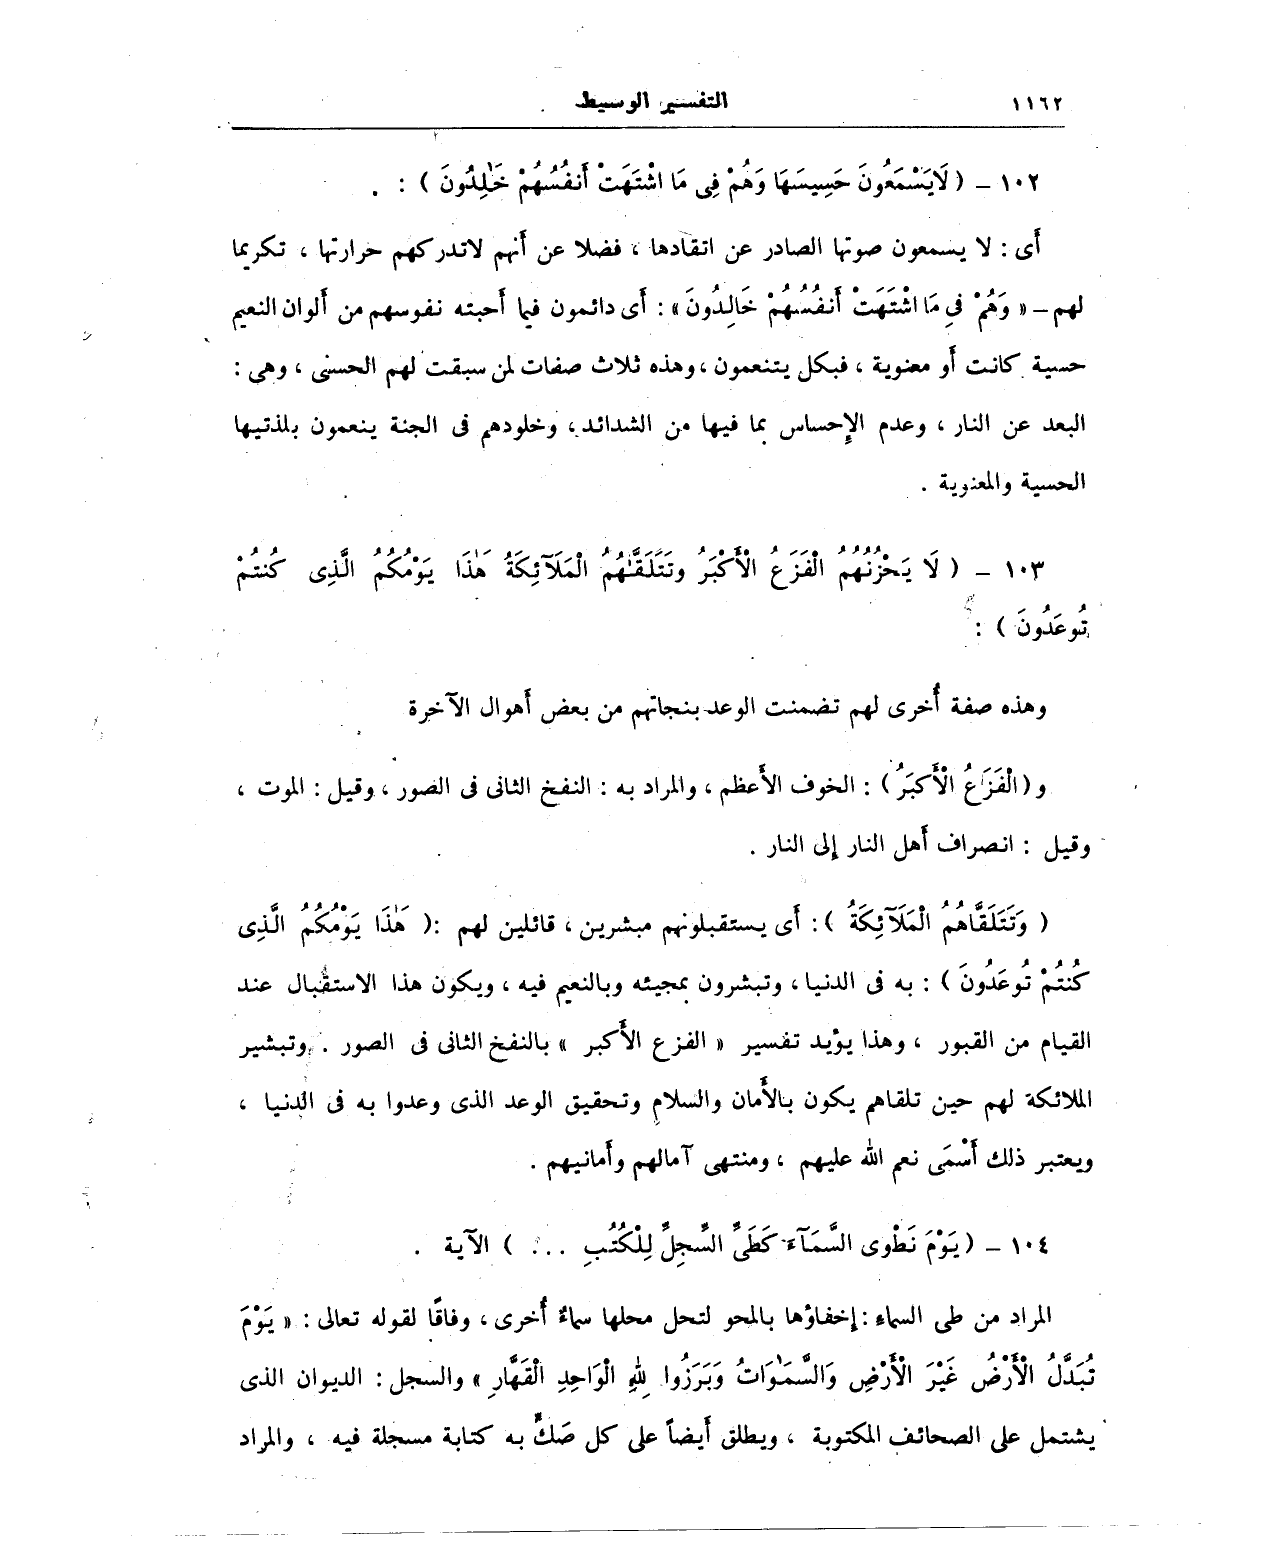 ١١٦٢ التفسير الوسيط
١٠٢ ــ ( لَايَسْمَعُونَ حَسِيسَهَا وَهُمْ فِى مَا اشْتَهَتْ أَنفُسُهُمْ خَٰلِدُونَ ) : .
أَى : لا يسمعون صوتها الصادر عن اتقادها ، فضلا عن أَنهم لاتدركهم حرارتها ، تكريما
لهم ــ « وَهُمْ فِى مَا اشْتَهَتْ أَنفُسُهُمْ خَالِدُونَ » : أَى دائمون فيما أَحبته نفوسهم من أَلوان النعيم
حسية كانت أَو معنوية ، فبكل يتنعمون ، وهذه ثلاث صفات لمن سبقت لهم الحسنى ، وهى :
البعد عن النار ، وعدم الإِحساس بما فيها من الشدائد ، وخلودهم فى الجنة ينعمون بلذتيها
الحسية والمعنوية .
١٠٣ ــ ( لَا يَحْزُنُهُمُ الْفَزَعُ الْأَكْبَرُ وتَتَلَقَّٰهُمُ الْمَلَآئِكَةُ هَٰذَا يَوْمُكُمُ الَّذِى كُنتُمْ
تُوعَدُونَ ) :
وهذه صفة أُخرى لهم تضمنت الوعد بنجاتهم من بعض أَهوال الآخرة
و ( الْفَزَعُ الْأَكبَرُ ) : الخوف الأَعظم ، والمراد به : النفخ الثانى فى الصور ، وقيل : الموت ،
وقيل : انصراف أَهل النار إلى النار .
( وَتَتَلَقَّاهُمُ الْمَلَآئِكَةُ ) : أَى يستقبلونهم مبشرين ، قائلين لهم : ( هَٰذَا يَوْمُكُمُ الَّذِى
كُنتُمْ تُوعَدُونَ ) : به فى الدنيا ، وتبشرون بمجيئه وبالنعيم فيه ، ويكون هذا الاستقبال عند
القيام من القبور ، وهذا يؤيد تفسير « الفزع الأَكبر » بالنفخ الثانى فى الصور . وتبشير
الملائكة لهم حين تلقاهم يكون بالأَمان والسلام وتحقيق الوعد الذى وعدوا به فى الدنيا ،
ويعتبر ذلك أَسْمَى نعم الله عليهم ، ومنتهى آمالهم وأَمانيهم .
١٠٤ ــ ( يَوْمَ نَطْوِى السَّمَآءَ كَطَىِّ السِّجِلِّ لِلْكُتُبِ ... ) الآية .
المراد من طى السماء : إخفاؤها بالمحو لتحل محلها سماءٌ أُخرى ، وفاقًا لقوله تعالى : « يَوْمَ
تُبَدَّلُ الْأَرْضُ غَيْرَ الْأَرْضِ وَالسَّمَٰوَاتُ وَبَرَزُوا لِلهِ الْوَاحِدِ الْقَهَّارِ » والسجل : الديوان الذى
يشتمل على الصحائف المكتوبة ، ويطلق أَيضاً على كل صَكٍّ به كتابة مسجلة فيه ، والمراد